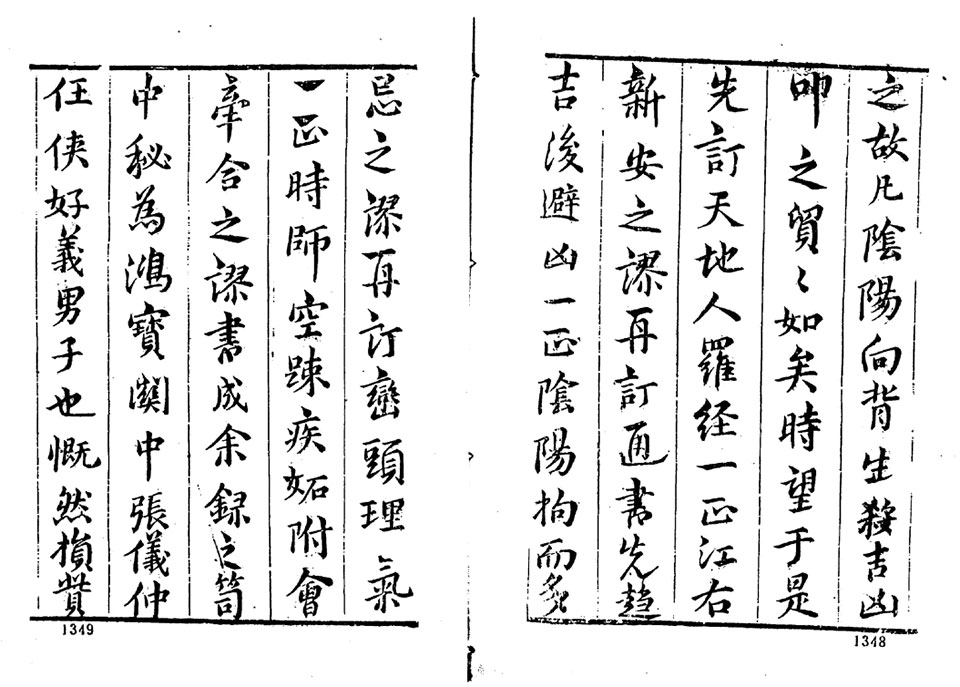 之故凡陰陽向背生殺吉凶
叩之貿〻如矣時望于是
先訂天地人羅经一正江右
新安之謬再訂通書先趋
吉後避凶一正陰陽拘而多
1348
忌之謬再订巒頭理氣
一正時師空踈疾妬附會
牵合之謬書成余録之笥
中秘為鴻寳関中張儀仲
任侠好義男子也慨然損貲
1349